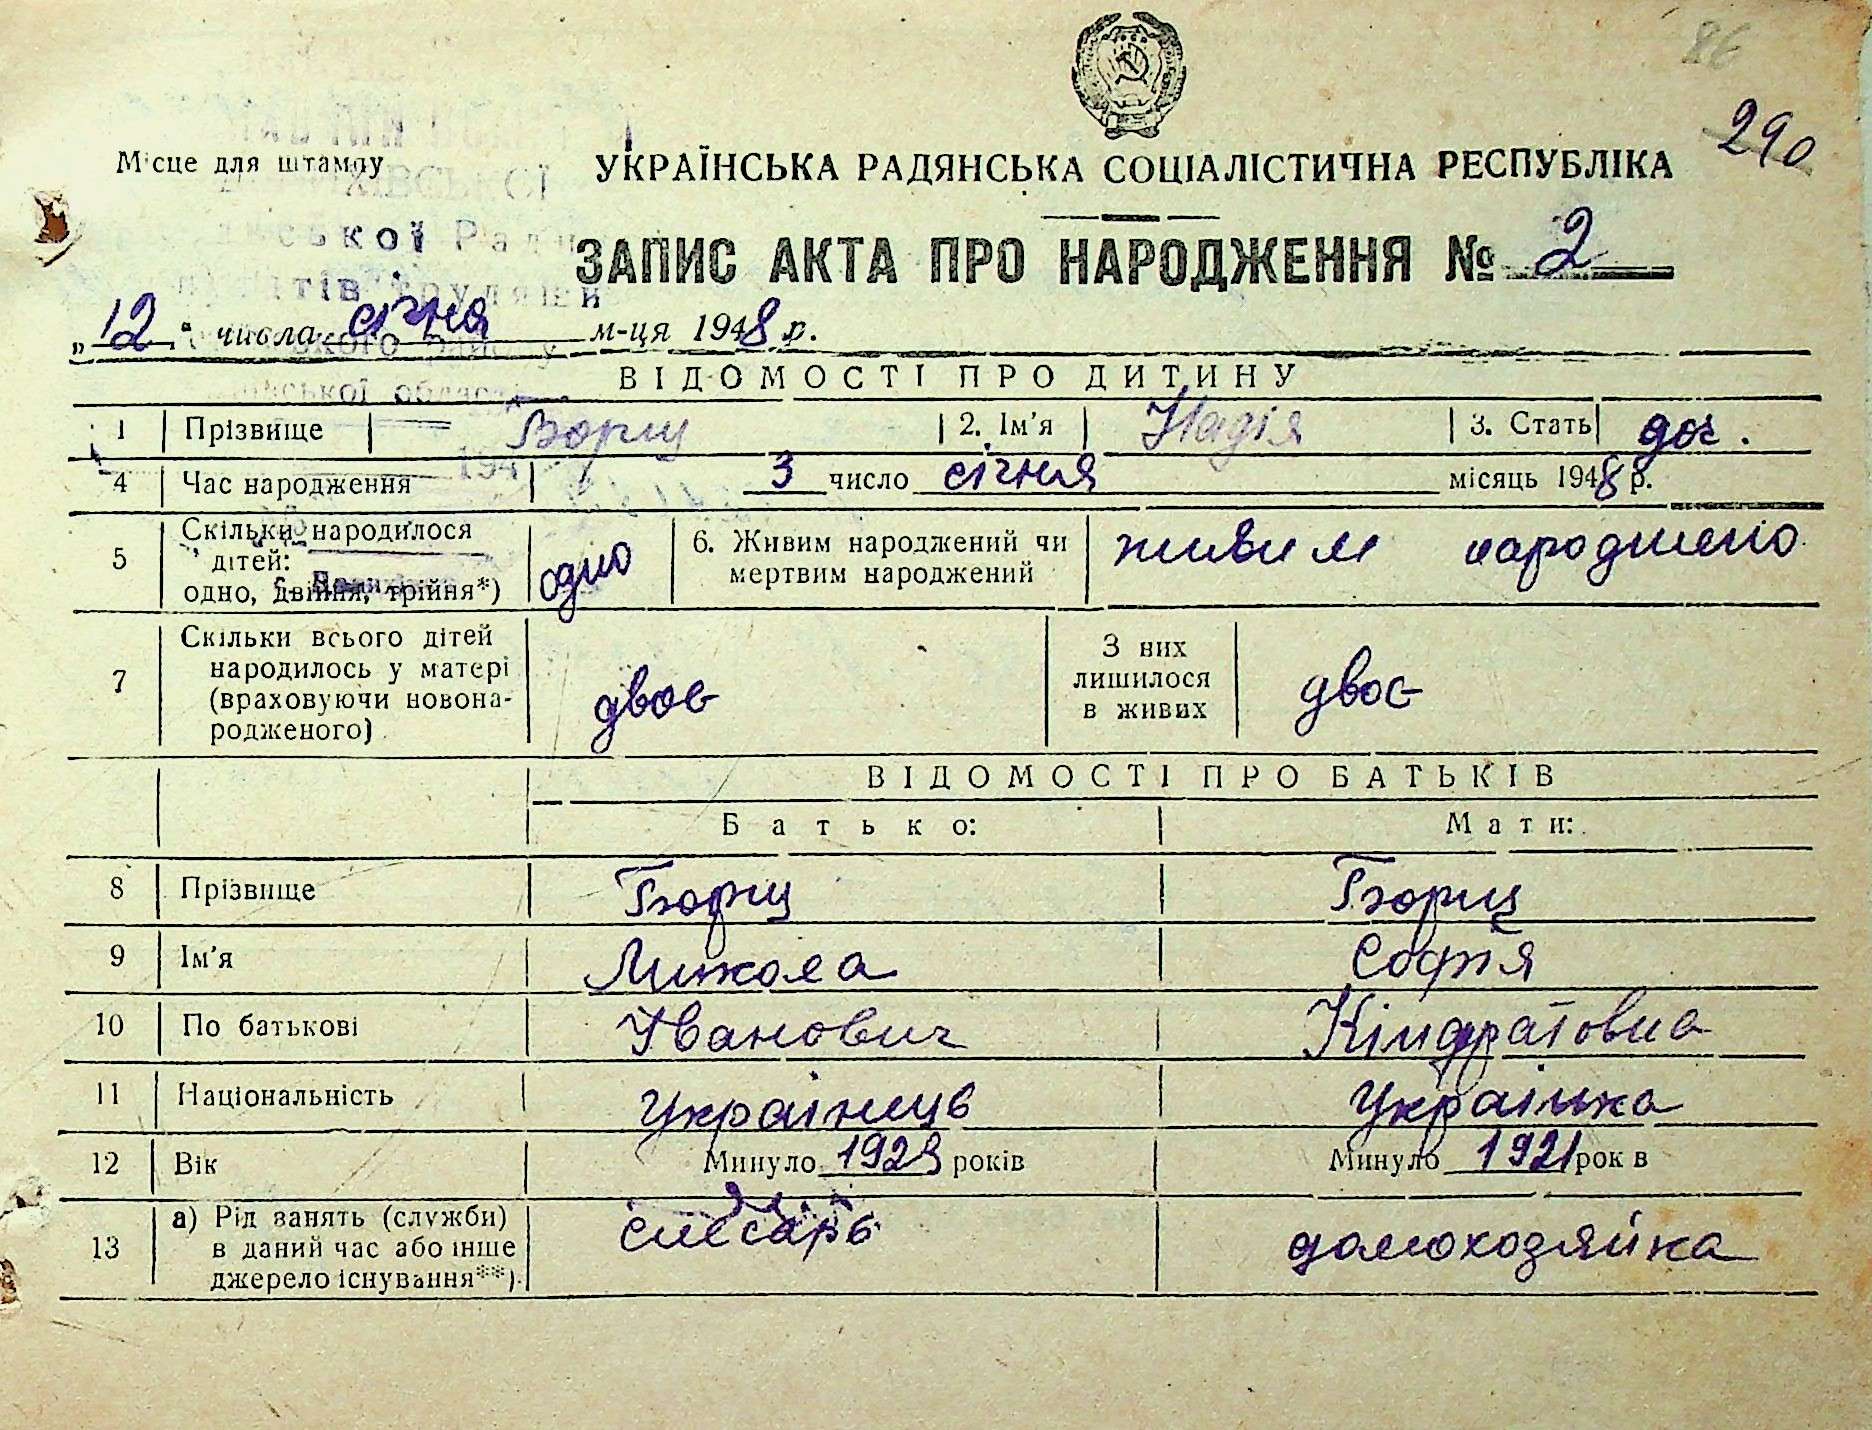 86
290
Місце для штампу
УКРАЇНСЬКА РАДЯНСЬКА СОЦІАЛІСТИЧНА РЕСПУБЛІКА
ської Ради
ЗАПИС АКТА ПРО НАРОДЖЕННЯ № 2
„12“ числа січня м-ця 1948 р.
ської області
ВІДОМОСТІ ПРО ДИТИНУ
1 Прізвище Борщ 2. Ім'я Надія 3. Стать доч.
194
4 Час народження 3 число січня місяць 1948 р.
5 Скільки народилося дітей: одно, двійня, трійня*) одно 6. Живим народжений чи мертвим народжений живим народжено
7 Скільки всього дітей народилось у матері (враховуючи новонародженого) двоє З них лишилося в живих двоє
ВІДОМОСТІ ПРО БАТЬКІВ
Батько: Мати:
8 Прізвище Борщ Борщ
9 Ім'я Микола Софія
10 По батькові Іванович Кіндратовна
11 Національність українець українка
12 Вік Минуло 1923 років Минуло 1921 рок в
13 а) Рід занять (служби) в даний час або інше джерело існування**) слесарь домохозяйка